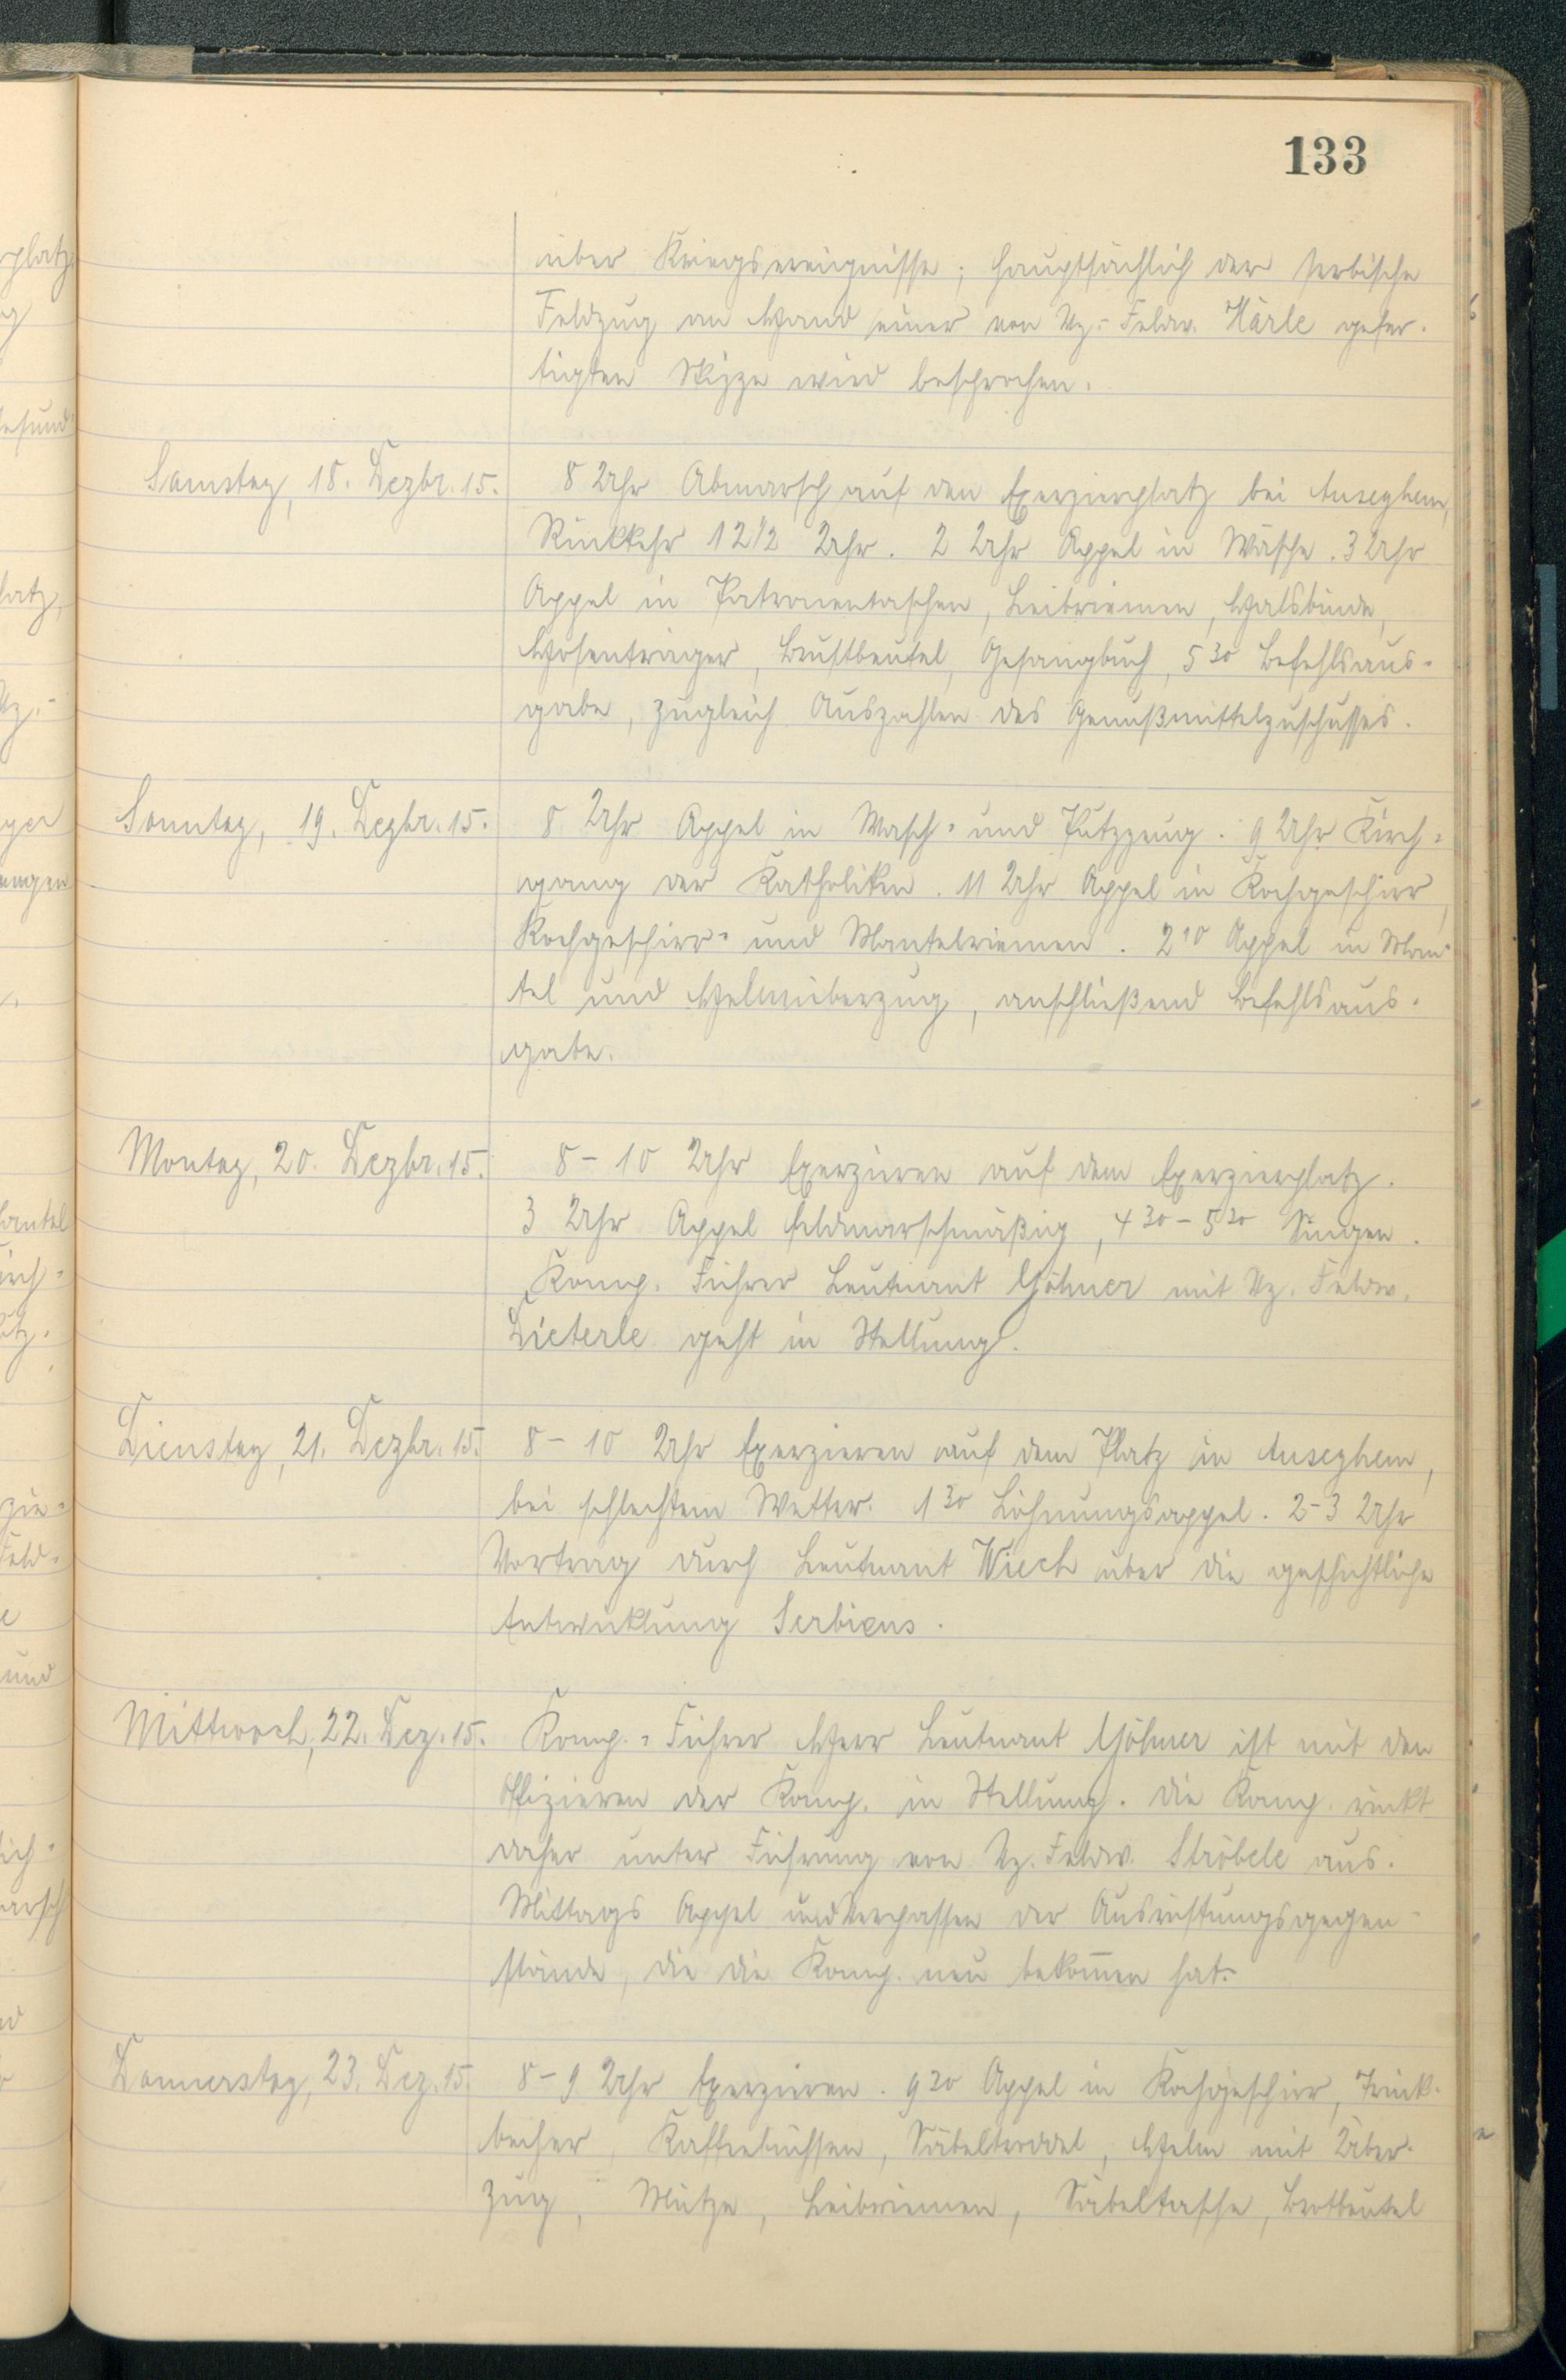 133
über Kriegsereignisse; hauptsächlich der serbische
Feldzug an Hand einer von Vz.-Feldw. Härle gefer-
tigten Skizze wird besprochen.
Samstag, 18. Dezbr. 15.
8 Uhr Abmarsch auf den Exerzierplatz bei Anseghem,
Rückkehr 12 1/2 Uhr. 2 Uhr Appel in Wäsche. 3 Uhr
Appel in Patronentaschen, Leibriemen, Halsbinde,
Hosenträger, Brustbeutel, Gesangbuch, 5 30 Befehlsaus-
gabe, zugleich Auszahlen des Genußmittelzuschusses.
Sonntag, 19. Dezbr. 15.
8 Uhr Appel in Wasch- und Putzzeug. 9 Uhr Kirch-
gang der Katholiken. 11 Uhr Appel in Kochgeschirr,
Kochgeschirr- und Mantelriemen. 2 10 Appel in Man-
tel und Helmüberzug, anschließend Befehlsaus-
gabe.
Montag, 20. Dezbr. 15.
8 - 10 Uhr Exerzieren auf dem Exerzierplatz.
3 Uhr Appel feldmarschmäßig, 4 30 - 5 30 Singen.
Komp. Führer Leutnant Göhner mit Vz. Feldw.
Dieterle geht in Stellung.
Dienstag, 21. Dezbr. 15.
8 - 10 Uhr Exerzieren auf dem Platz in Anseghem,
bei schlechtem Wetter. 1 30 Löhnungsappel. 2-3 Uhr
Vortrag durch Leutnant Wiech über die geschichtliche
Entwicklung Serbiens.
Mittwoch, 22. Dez. 15.
Komp.-Führer Herr Leutnant Göhner ist mit den
Offizieren der Komp. in Stellung. Die Komp. rückt
daher unter Führung von Vz. Feldw. Ströbele aus.
Mittags Appel und Verpassen der Ausrüstungsgegen-
stände, die die Komp. neu bekom̅en hat.
Donnerstag, 23. Dez. 15.
8 - 9 Uhr Exerzieren. 9 20 Appel in Kochgeschirr, Trink-
becher, Kaffeebüchsen, Säbeltroddel, Helm mit Über-
zug, Mütze, Leibriemen, Säbeltasche, Brotbeutel